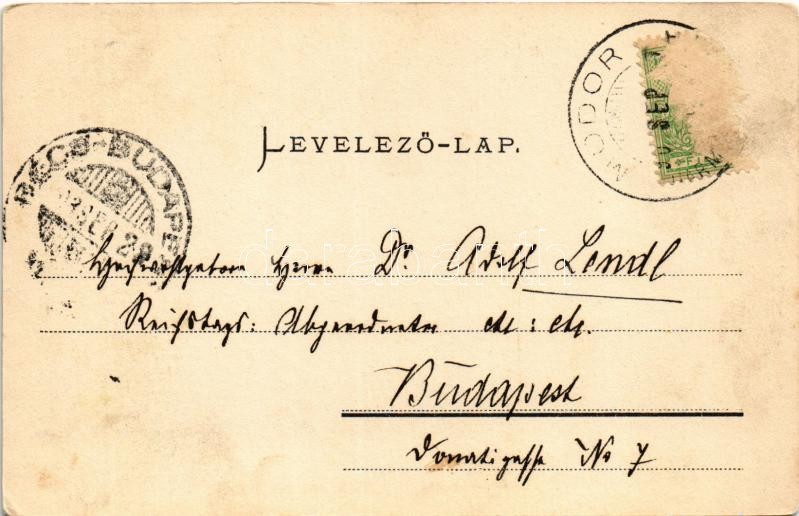 MODOR
LEVELEZŐ-LAP.
BÉCS-BUDAPEST
Hochwohlgeboren Herrn Dr Adolf Lendl
Reichstags: Abgeordneter etc: etc.
Budapest
Donatigasse No 7